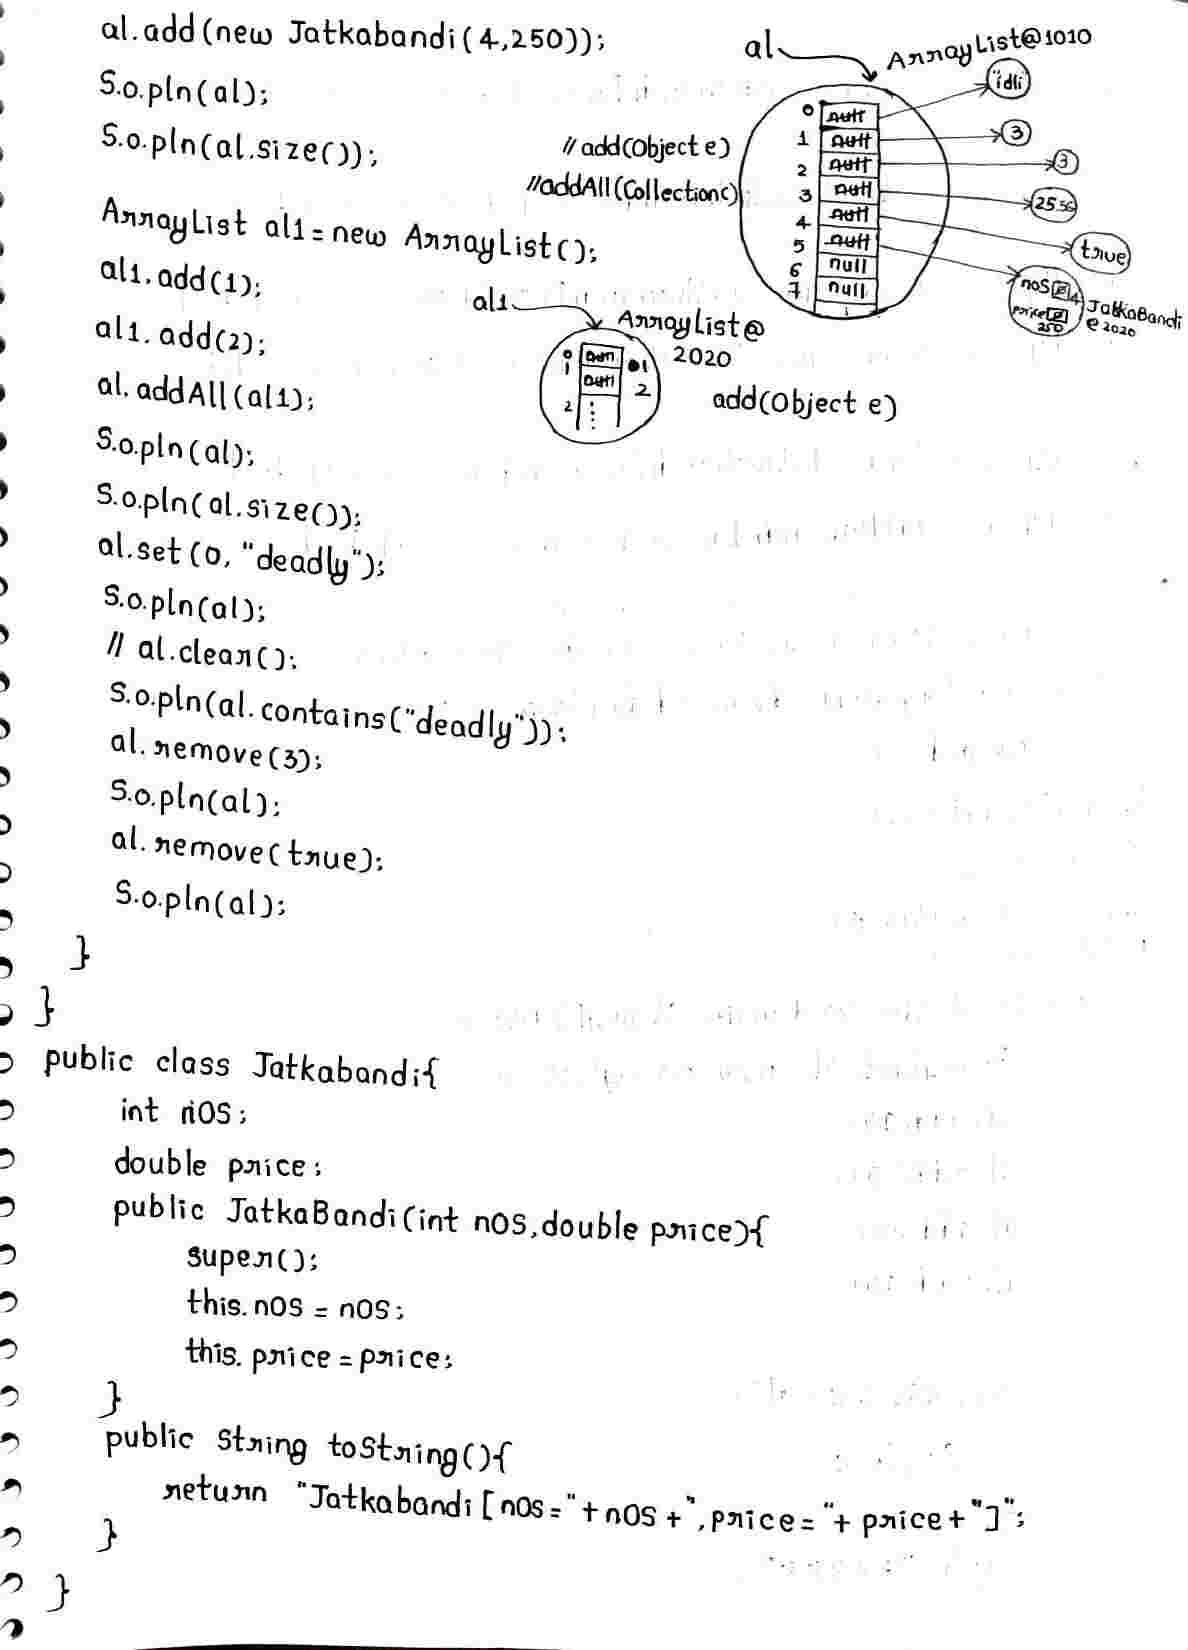 al.add(new Jatkabandi(4,250));
S.o.pln(al);
S.o.pln(al.size());
ArrayList al1 = new ArrayList();
al1.add(1);
al1.add(2);
al.addAll(al1);
S.o.pln(al);
S.o.pln(al.size());
al.set(0, "deadly");
S.o.pln(al);
// al.clear();
S.o.pln(al.contains("deadly"));
al.remove(3);
S.o.pln(al);
al.remove(true);
S.o.pln(al);
}
}
public class Jatkabandi{
int nOS;
double price;
public JatkaBandi(int nOS,double price){
super();
this.nOS = nOS;
this.price = price;
}
public String toString(){
return "Jatkabandi[nOS="+nOS+",price="+price+"]";
}
}
al
ArrayList@1010
//add(Object e)
//addAll(Collection c)
0 null
1 null
2 null
3 null
4 null
5 null
6 null
7 null
"idli"
3
3
25.5
true
nOS 4
price
250
JatkaBandi
@2020
al1
ArrayList@
2020
0 null 1
1 null 2
2
add(Object e)